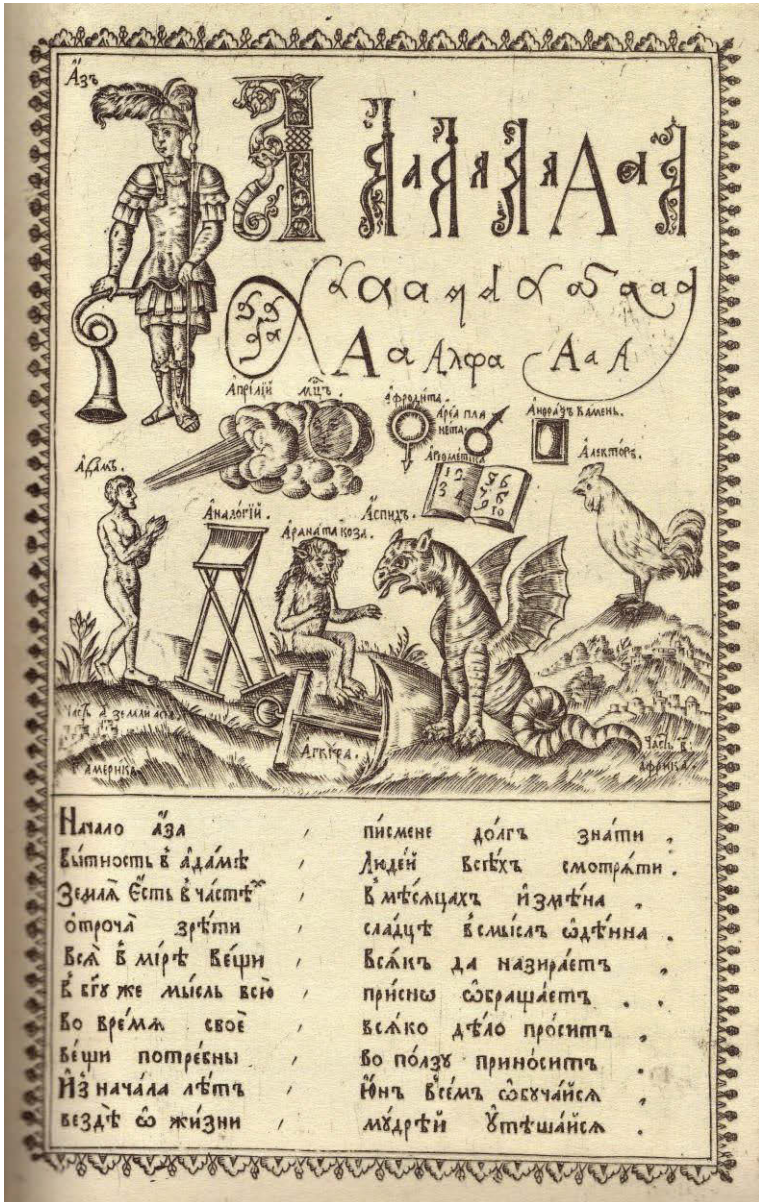 А҆́зъ
А а А а А а А а А
А а Алфа А а А
А҆прі́лїй мц҃ъ .
А҆фроди́та .
А҆ре́а пла
нета .
А҆риѳме́тїка
1 2
3 4
5 6
7 8
9 10
Ка́мень .
А҆ле́кторъ .
А҆да́мъ .
А҆нало́гїй .
А҆́спидъ .
А҆рана́та коза̀ .
А҆гкѵ́ра .
Ча́сть а҃ земли̑
а҆ме́рика .
Ча́сть в҃ :
а҆́фрика .
Нача́ло а҆́за , пи́смене до́лгъ зна́ти ,
вы́тность в̾ а҆да́мѣ , Люде́й всѣ́хъ смотрѧ́ти .
Землѧ̀ є҆́сть в̾ ча́стѣх , в̾ мѣ́сѧцахъ и҆змѣ́на .
о҆троча̀ зрѣ́ти , сла́дцѣ в̾ смы́слъ ѡ҆дѣ́инна .
всѧ̑ в̾ мі́рѣ ве́щи , всѧ́къ да назира́етъ .
в̾ бг҃у же мы́сль всю̀ , при́снѡ ѡ҆браща́етъ .
во вре́мѧ своѐ , всѧ́ко дѣ́ло про́ситъ ,
ве́щи потре́бны , во по́лзу прино́ситъ .
И҆з̾ нача́ла лѣ́тъ , ю҆́нъ всѣ́мъ ѡ҆бꙋча́йсѧ
вездѣ̀ ѡ҆ жи́зни , мꙋ́дрѣй ᲂу҆тѣша́йсѧ .